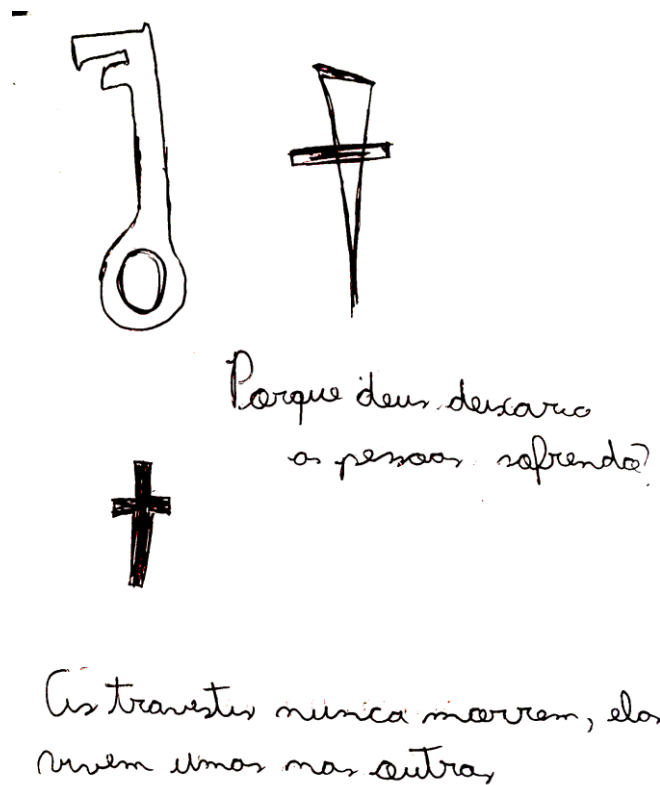 Porque deus deixaria
as pessoas sofrendo?
As travestis nunca morrem, elas
vivem umas nas outras